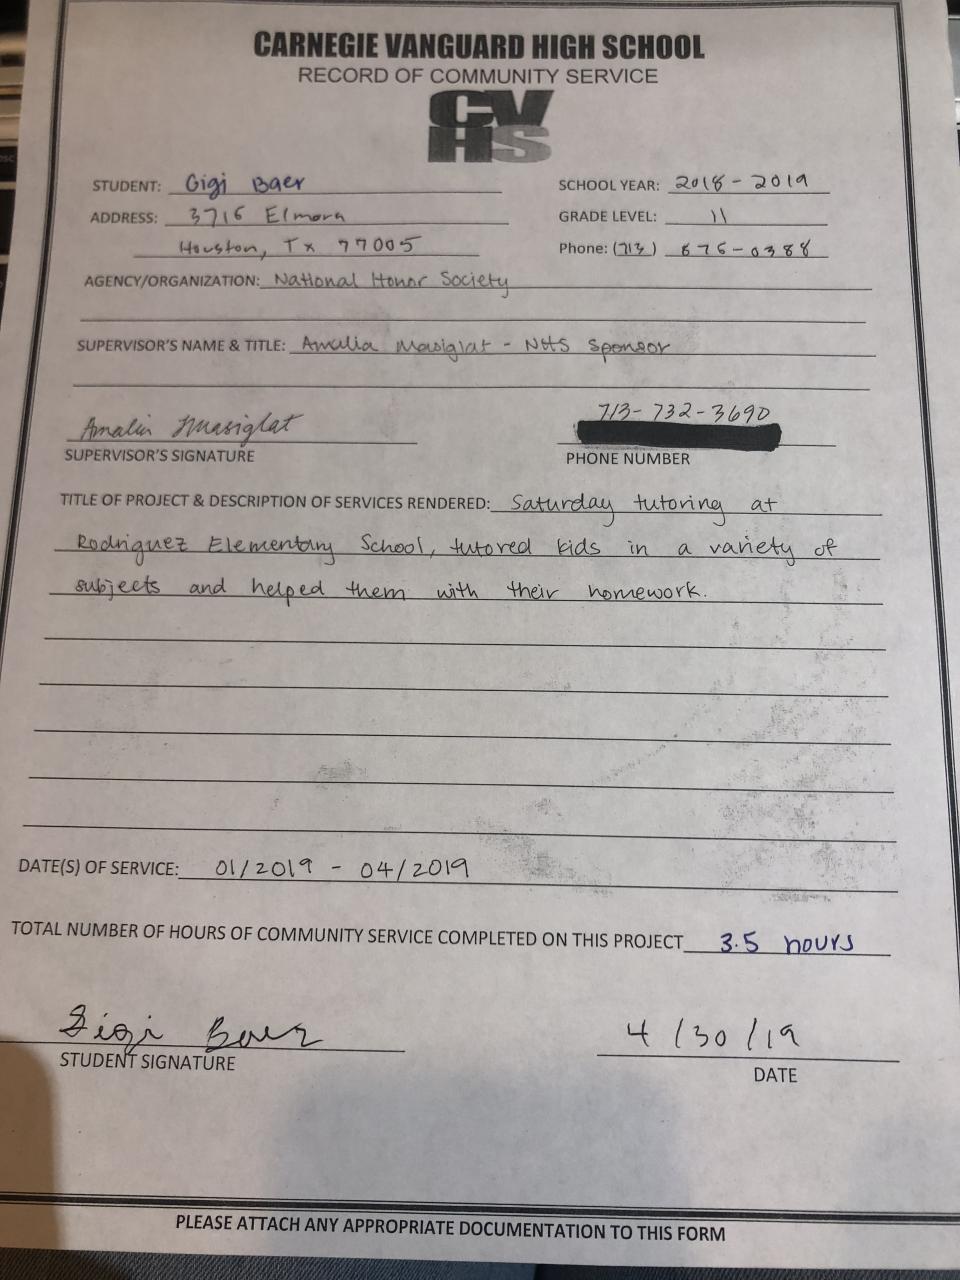 CARNEGIE VANGUARD HIGH SCHOOL
RECORD OF COMMUNITY SERVICE
CV
HS
STUDENT: Gigi Baer SCHOOL YEAR: 2018-2019
ADDRESS: 3716 Elmora GRADE LEVEL: 11
Houston, Tx 77005 Phone: (713) 676-0388
AGENCY/ORGANIZATION: National Honor Society
SUPERVISOR'S NAME & TITLE: Amalia Masiglat - NHS Sponsor
Amalia Masiglat 713-732-3690
SUPERVISOR'S SIGNATURE PHONE NUMBER
TITLE OF PROJECT & DESCRIPTION OF SERVICES RENDERED: Saturday tutoring at
Rodriguez Elementary School, tutored kids in a variety of
subjects and helped them with their homework.
DATE(S) OF SERVICE: 01/2019 - 04/2019
TOTAL NUMBER OF HOURS OF COMMUNITY SERVICE COMPLETED ON THIS PROJECT 3.5 hours
Gigi Baer 4/30/19
STUDENT SIGNATURE DATE
PLEASE ATTACH ANY APPROPRIATE DOCUMENTATION TO THIS FORM